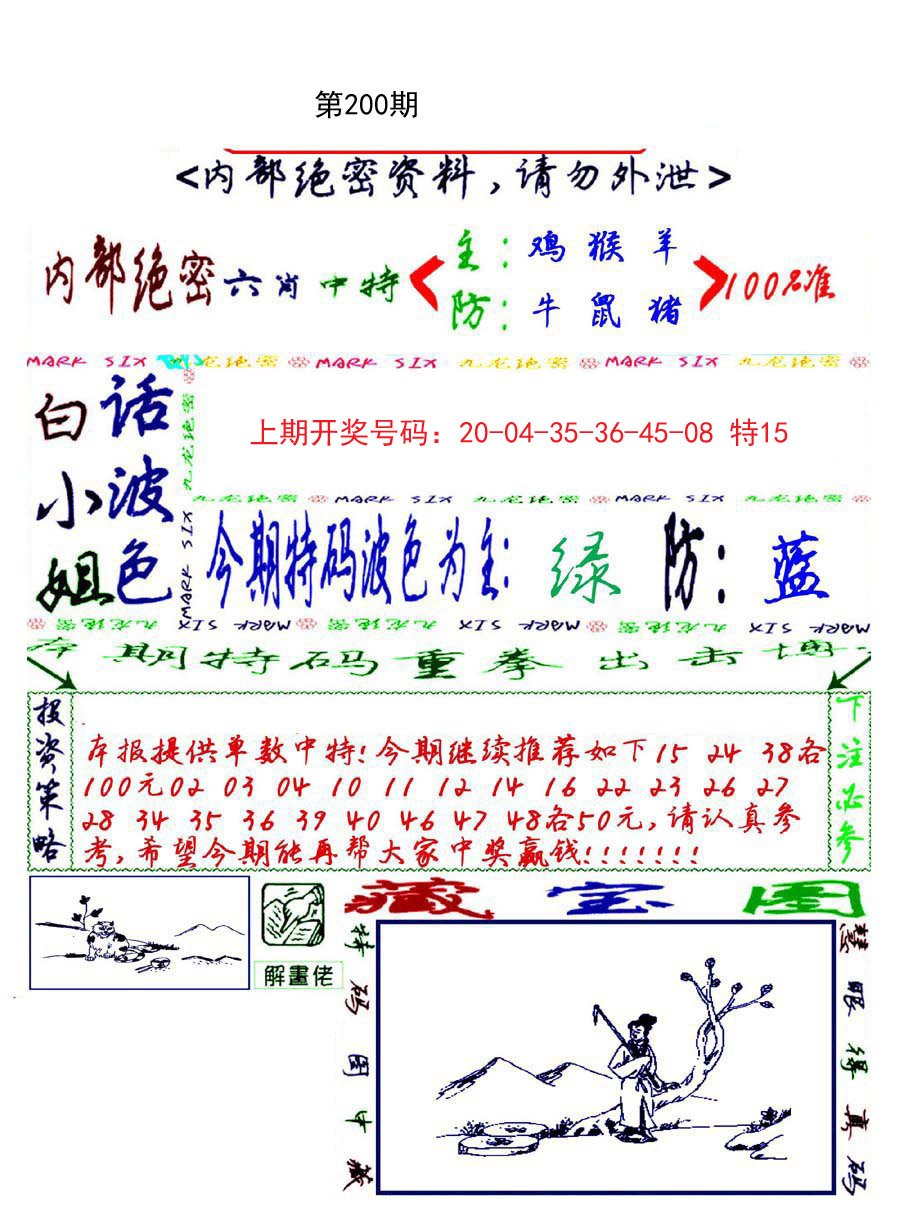 第200期
<内部绝密资料,请勿外泄>
内部绝密六肖中特
主:鸡猴羊
防:牛鼠猪
100%准
MARK SIX 九龙绝密 MARK SIX 九龙绝密 MARK SIX 九龙绝密
白小姐
话波色
九龙绝密
MARK SIX
上期开奖号码:20-04-35-36-45-08 特15
九龙绝密 MARK SIX 九龙绝密 MARK SIX 九龙绝密
今期特码波色为主:绿 防:蓝
九龙绝密 MARK SIX 九龙绝密 MARK SIX 九龙绝密 MARK SIX
本期特码重拳出击博
投资策略
本报提供单数中特!今期继续推荐如下15 24 38各
100元02 03 04 10 11 12 14 16 22 23 26 27
28 34 35 36 39 40 46 47 48各50元,请认真参
考,希望今期能再帮大家中奖赢钱!!!!!!!
下注必参
解畫佬
藏宝图
特码图中藏
慧眼得真码